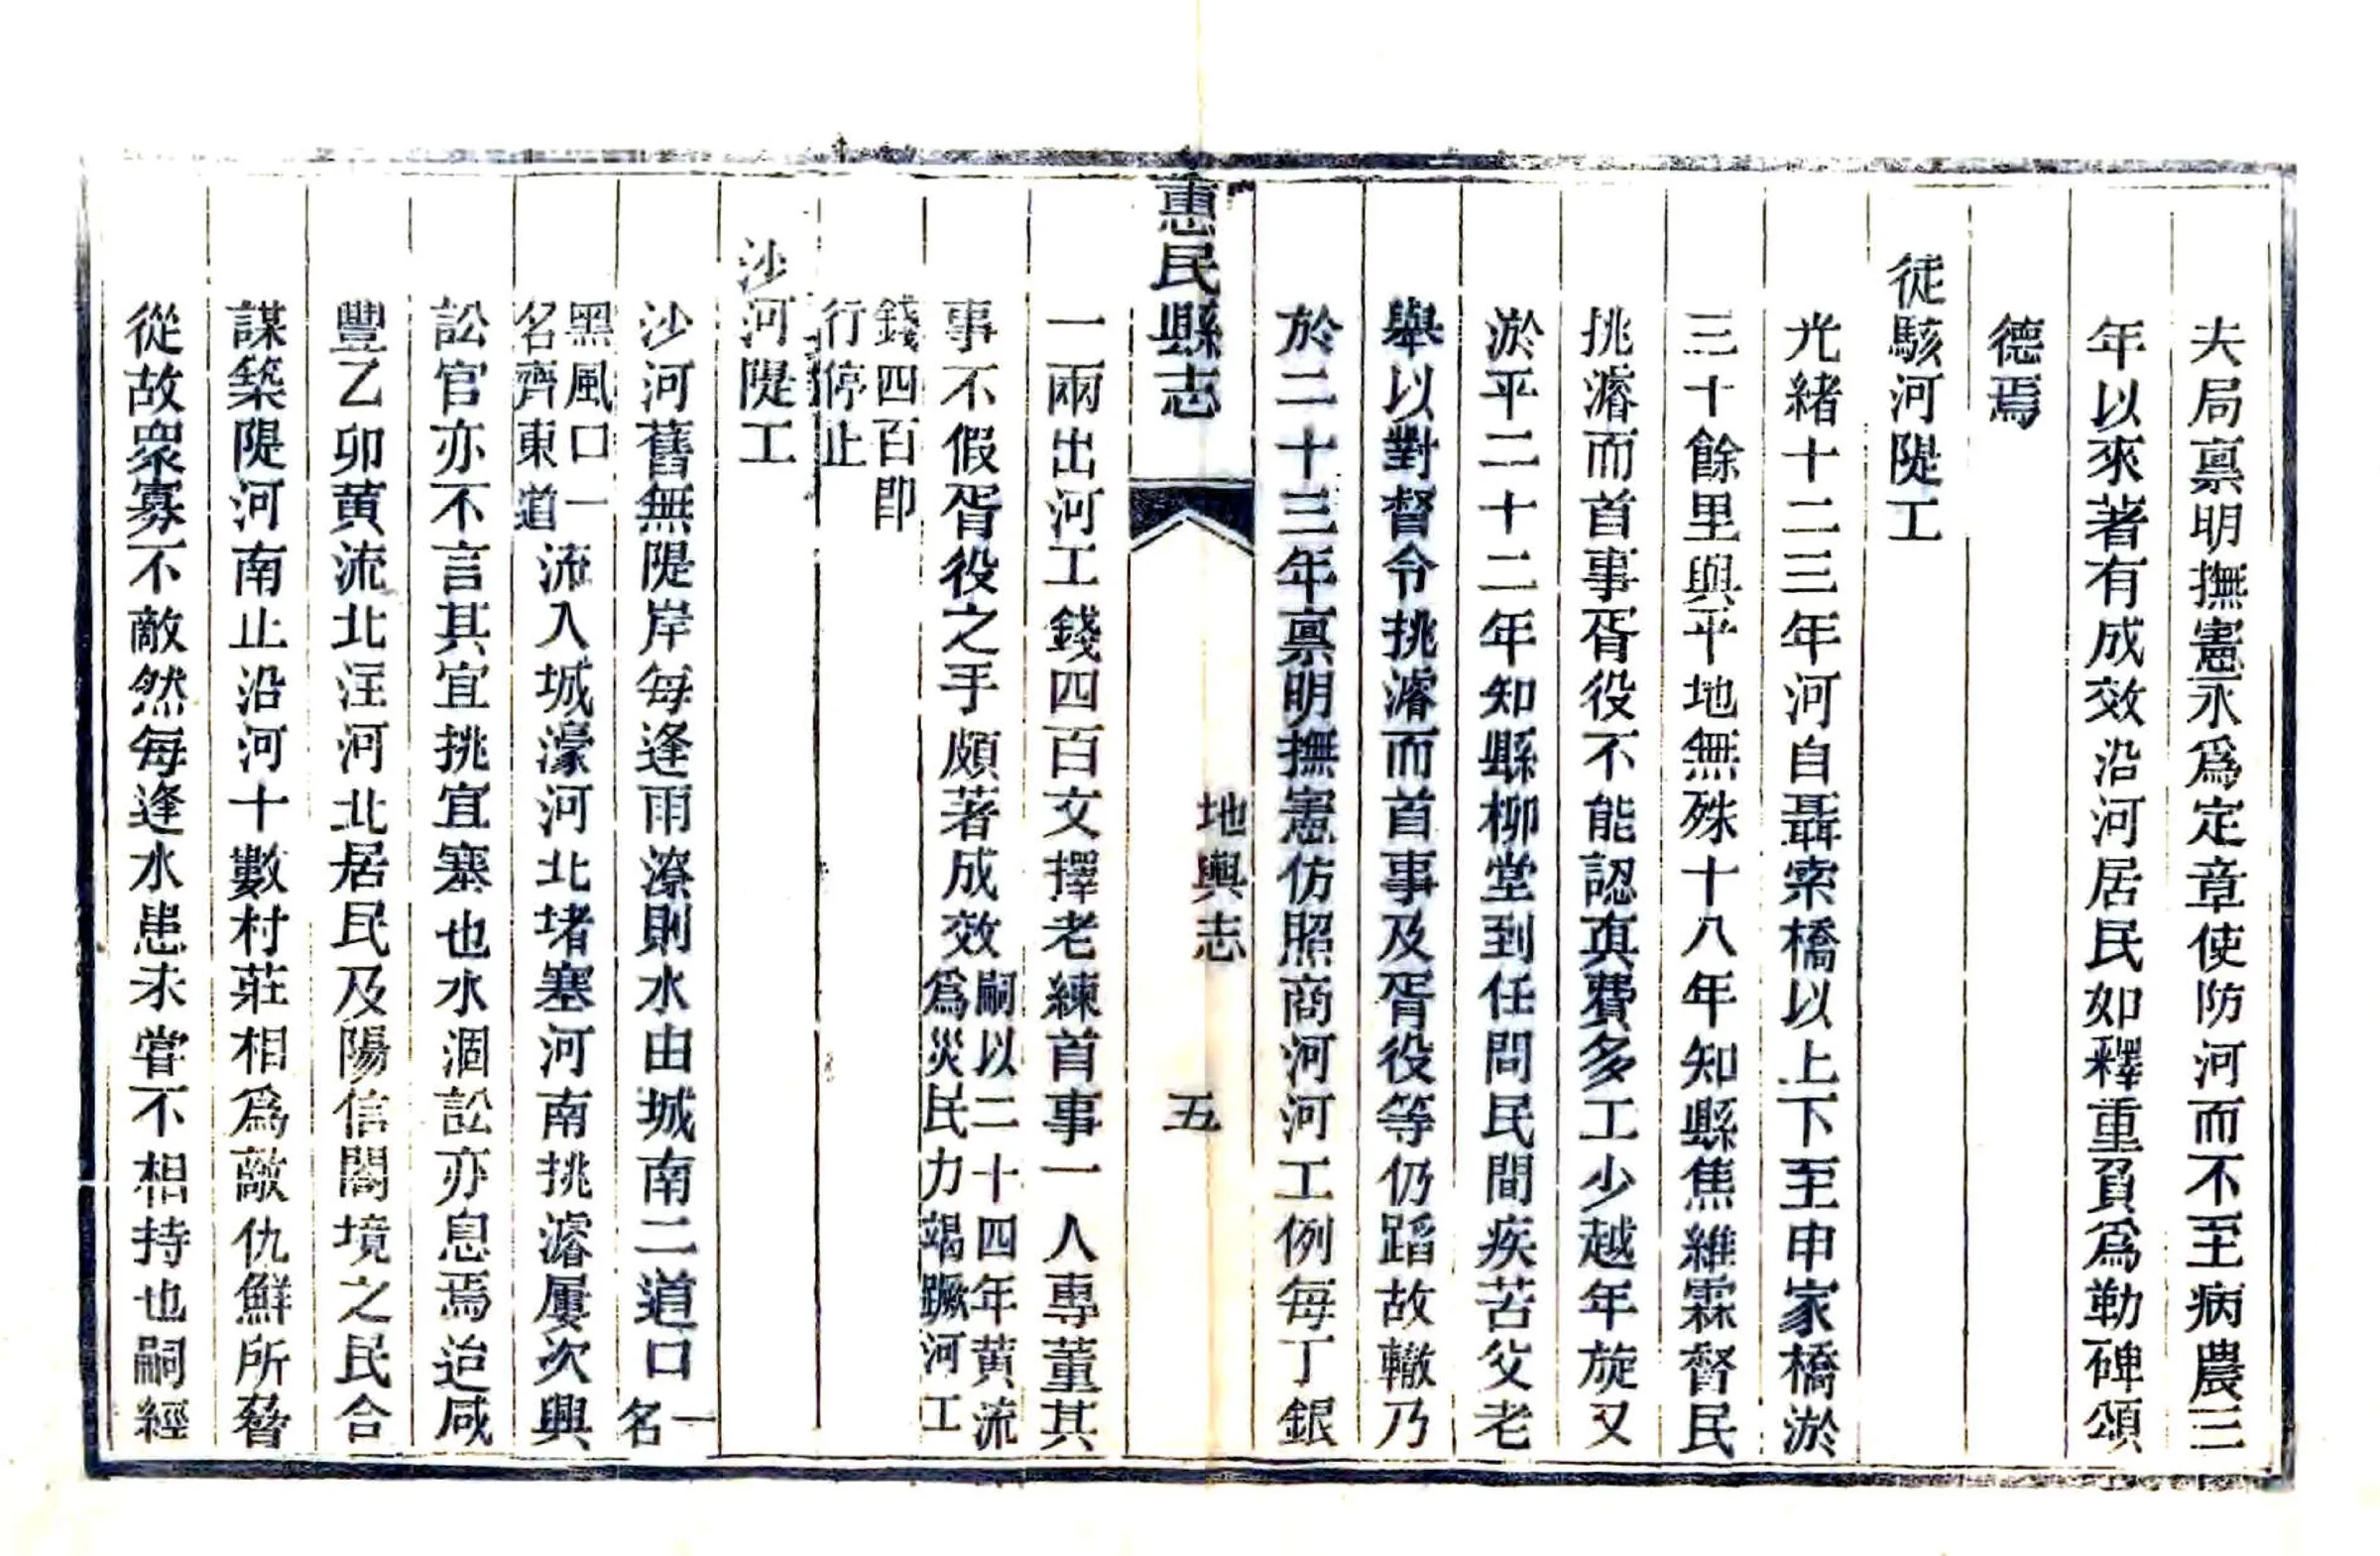 夫局稟明撫憲永爲定章使防河而不至病農三
年以來著有成效沿河居民如釋重負爲勒碑頌
德焉
徒駭河隄工
光緒十二三年河自聶索橋以上下至申家橋淤
三十餘里與平地無殊十八年知縣焦維霖督民
挑濬而首事胥役不能認眞費多工少越年旋又
淤平二十二年知縣柳堂到任問民間疾苦父老
舉以對督令挑濬而首事及胥役等仍蹈故轍乃
於二十三年稟明撫憲仿照商河河工例每丁銀
惠民縣志
地輿志
五
一兩出河工錢四百文擇老練首事一人專董其
事不假胥役之手頗著成效嗣以二十四年黃流
爲災民力竭蹶河工
錢四百卽
行停止
沙河隄工
沙河舊無隄岸每逢雨潦則水由城南二道口一
名
黑風口一
名齊東道流入城濠河北堵塞河南挑濬屢次興
訟官亦不言其宜挑宜塞也水涸訟亦息焉迨咸
豐乙卯黃流北汪河北居民及陽信閤境之民合
謀築隄河南止沿河十數村莊相爲敵仇鮮所脅
從故衆寡不敵然每逢水患未嘗不相持也嗣經